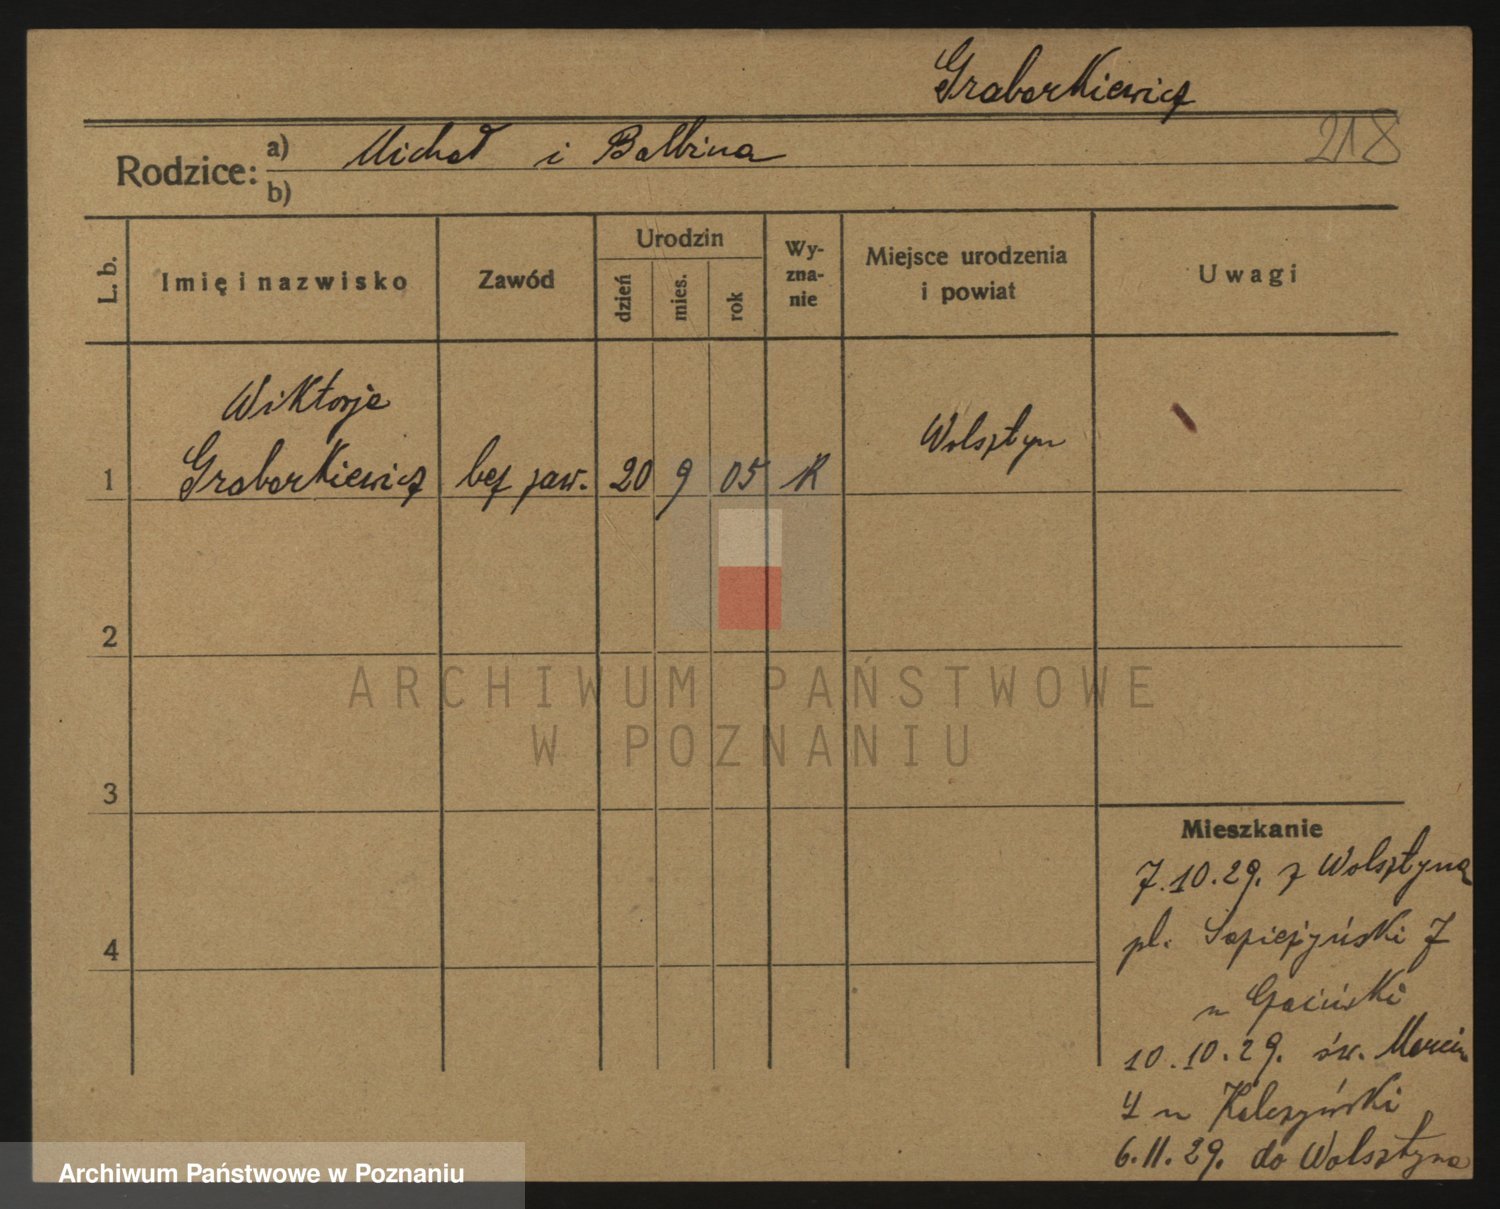 Graborkiewicz
218
Rodzice: a) Michał i Balbina
b)
L. b. Imię i nazwisko Zawód Urodzin dzień mies. rok Wy-zna-nie Miejsce urodzenia i powiat Uwagi
Wiktorja
1 Graborkiewicz bez zaw. 20 9 05 K Wolsztyn
2
3
4
Mieszkanie
7.10.29. z Wolsztyna
pl. Sapieżyński 7
u
10.10.29. św. Marcin
u
6.11.29. do Wolsztyna
ARCHIWUM PAŃSTWOWE
W POZNANIU
Archiwum Państwowe w Poznaniu